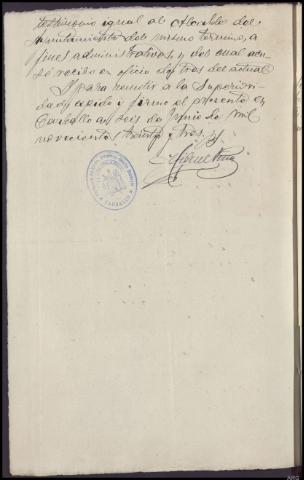 testimonio igual al Alcalde del
Ayuntamiento del mismo termino, a
fines administrativos, y del cual acu-
só recibo en oficio del tres del actual
Y para remitir a la Superiori-
dad, expido y firmo el presente en
Carballo a seis de Junio de mil
novecientos treinta y tres.
CARBALLO